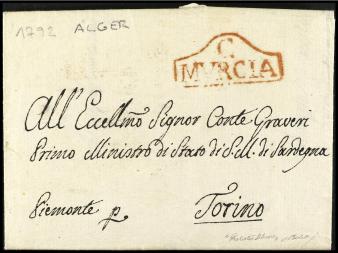 1792 ALGER
C.
MVRCIA
All' Eccellmo Signor Conte Graveri
Primo Ministro di Stato di S. M. di Sardegna
Piemonte p. Torino